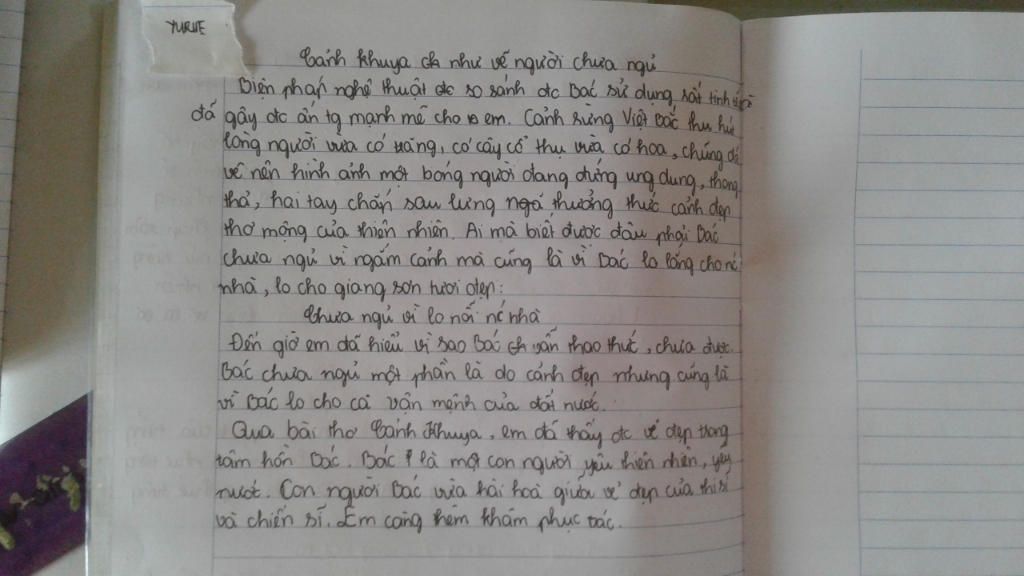 YURIE
Cảnh khuya như vẽ người chưa ngủ
Biện pháp nghệ thuật so sánh đc Bác sử dụng rất tinh tế
đã gây đc ấn tg mạnh mẽ cho em. Cảnh rừng Việt Bắc thu hút
lòng người vừa có trăng, có cây cổ thụ vừa có hoa, chúng đã
vẽ nên hình ảnh một bóng người đang đứng ung dung, thong
thả, hai tay chắp sau lưng thưởng thức cảnh đẹp
thơ mộng của thiên nhiên. Ai mà biết được đâu phải Bác
chưa ngủ vì ngắm cảnh mà cũng là vì Bác lo lắng cho nc
nhà, lo cho giang sơn tươi đẹp:
Chưa ngủ vì lo nỗi nc nhà
Đến giờ em đã hiểu vì sao Bác vẫn thao thức, chưa được.
Bác chưa ngủ một phần là do cảnh đẹp nhưng cũng là
vì Bác lo cho cả vận mệnh của đất nước.
Qua bài thơ Cảnh Khuya, em đã thấy đc vẻ đẹp trong
tâm hồn Bác. Bác là một con người yêu thiên nhiên, yêu
nước. Con người Bác vừa hài hoà giữa vẻ đẹp của thi sĩ
và chiến sĩ. Em càng thêm khâm phục Bác.